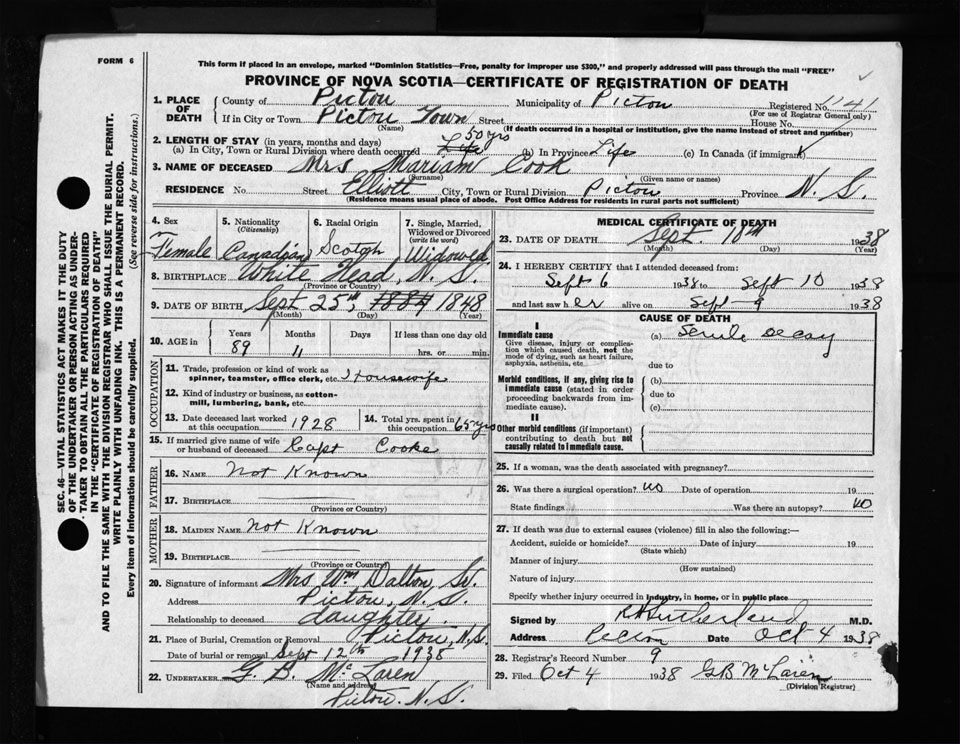 FORM 6
This form if placed in an envelope, marked "Dominion Statistics—Free, penalty for improper use $300," and properly addressed will pass through the mail "FREE"
PROVINCE OF NOVA SCOTIA—CERTIFICATE OF REGISTRATION OF DEATH
SEC. 46—VITAL STATISTICS ACT MAKES IT THE DUTY
OF THE UNDERTAKER OR PERSON ACTING AS UNDER-
TAKER TO OBTAIN ALL THE PARTICULARS REQUIRED
IN THE "CERTIFICATE OF REGISTRATION OF DEATH"
AND TO FILE THE SAME WITH THE DIVISION REGISTRAR WHO SHALL ISSUE THE BURIAL PERMIT.
WRITE PLAINLY WITH UNFADING INK. THIS IS A PERMANENT RECORD.
Every item of information should be carefully supplied. (See reverse side for instructions.)
1. PLACE OF DEATH County of Pictou Municipality of Pictou Registered No. 1141
(For use of Registrar General only)
If in City or Town Pictou Town Street House No.
(Name) (If death occurred in a hospital or institution, give the name instead of street and number)
2. LENGTH OF STAY (in years, months and days) 50 yrs
(a) In City, Town or Rural Division where death occurred Life (b) In Province Life (c) In Canada (if immigrant)
3. NAME OF DECEASED Mrs Mariam Cook
(Surname) (Given name or names)
RESIDENCE No. Street Elliott City, Town or Rural Division Pictou Province N.S.
(Residence means usual place of abode. Post Office Address for residents in rural parts not sufficient)
4. Sex Female
5. Nationality (Citizenship) Canadian
6. Racial Origin Scotch
7. Single, Married, Widowed or Divorced (write the word) Widowed
8. BIRTHPLACE White Head, N.S.
(Province or Country)
9. DATE OF BIRTH Sept 25th, 1884 1848
(Month) (Day) (Year)
10. AGE in Years 89 Months 11 Days If less than one day old hrs. or min.
OCCUPATION
11. Trade, profession or kind of work as spinner, teamster, office clerk, etc. Housewife
12. Kind of industry or business, as cotton-mill, lumbering, bank, etc.
13. Date deceased last worked at this occupation 1928
14. Total yrs. spent in this occupation 65 yrs
15. If married give name of wife or husband of deceased Capt Cooke
FATHER
16. NAME Not Known
17. BIRTHPLACE
(Province or Country)
MOTHER
18. MAIDEN NAME Not Known
19. BIRTHPLACE
(Province or Country)
20. Signature of informant Mrs Wm Dalton, Sr.
Address Pictou, N.S.
Relationship to deceased daughter.
21. Place of Burial, Cremation or Removal Pictou, N.S.
Date of burial or removal Sept 12th 1938
22. UNDERTAKER G. B. McLaren
(Name and address)
Pictou. N.S.
MEDICAL CERTIFICATE OF DEATH
23. DATE OF DEATH Sept. 10th 1938
(Month) (Day) (Year)
24. I HEREBY CERTIFY that I attended deceased from:
Sept 6 1938 to Sept 10 1938
and last saw her alive on Sept 9 1938
CAUSE OF DEATH
I
Immediate cause (a) Senile Decay
Give disease, injury or complication which caused death, not the mode of dying, such as heart failure, asphyxia, asthenia, etc.
due to
Morbid conditions, if any, giving rise to immediate cause (stated in order proceeding backwards from immediate cause).
(b)
due to
(c)
II
Other morbid conditions (if important) contributing to death but not causally related to immediate cause.
25. If a woman, was the death associated with pregnancy?
26. Was there a surgical operation? no Date of operation 19
State findings Was there an autopsy? no
27. If death was due to external causes (violence) fill in also the following:—
Accident, suicide or homicide? Date of injury 19
(State which)
Manner of injury
(How sustained)
Nature of injury
Specify whether injury occurred in industry, in home, or in public place
Signed by Sutherland M.D.
Address Pictou Date Oct 4 1938
28. Registrar's Record Number 9
29. Filed Oct 4 1938 G B McLaren
(Division Registrar)